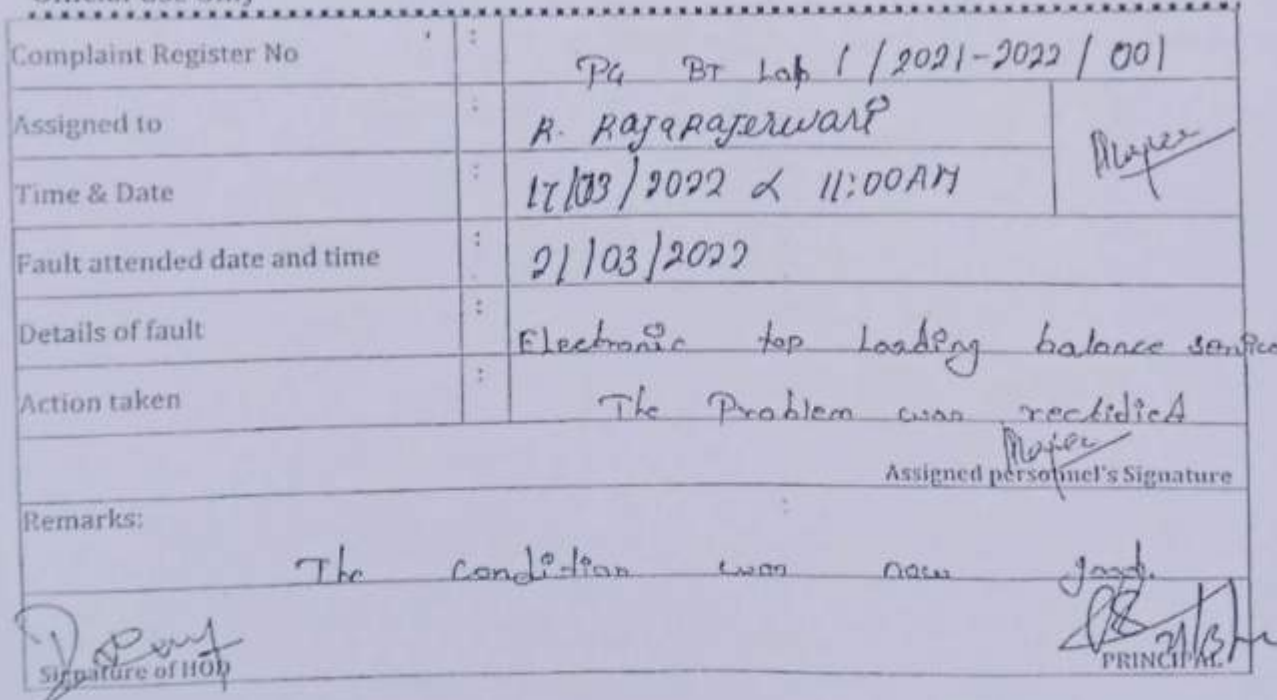 Complaint Register No : PG BT Lab 1 / 2021-2022 / 001
Assigned to : R. Rajarajeswari
Time & Date : 17/03/2022 & 11:00AM
Fault attended date and time : 21/03/2022
Details of fault : Electronic top Loading balance service
Action taken : The Problem was rectidied
Assigned personnel's Signature
Remarks:
The condition was now good.
Signature of HOD
PRINCIPAL